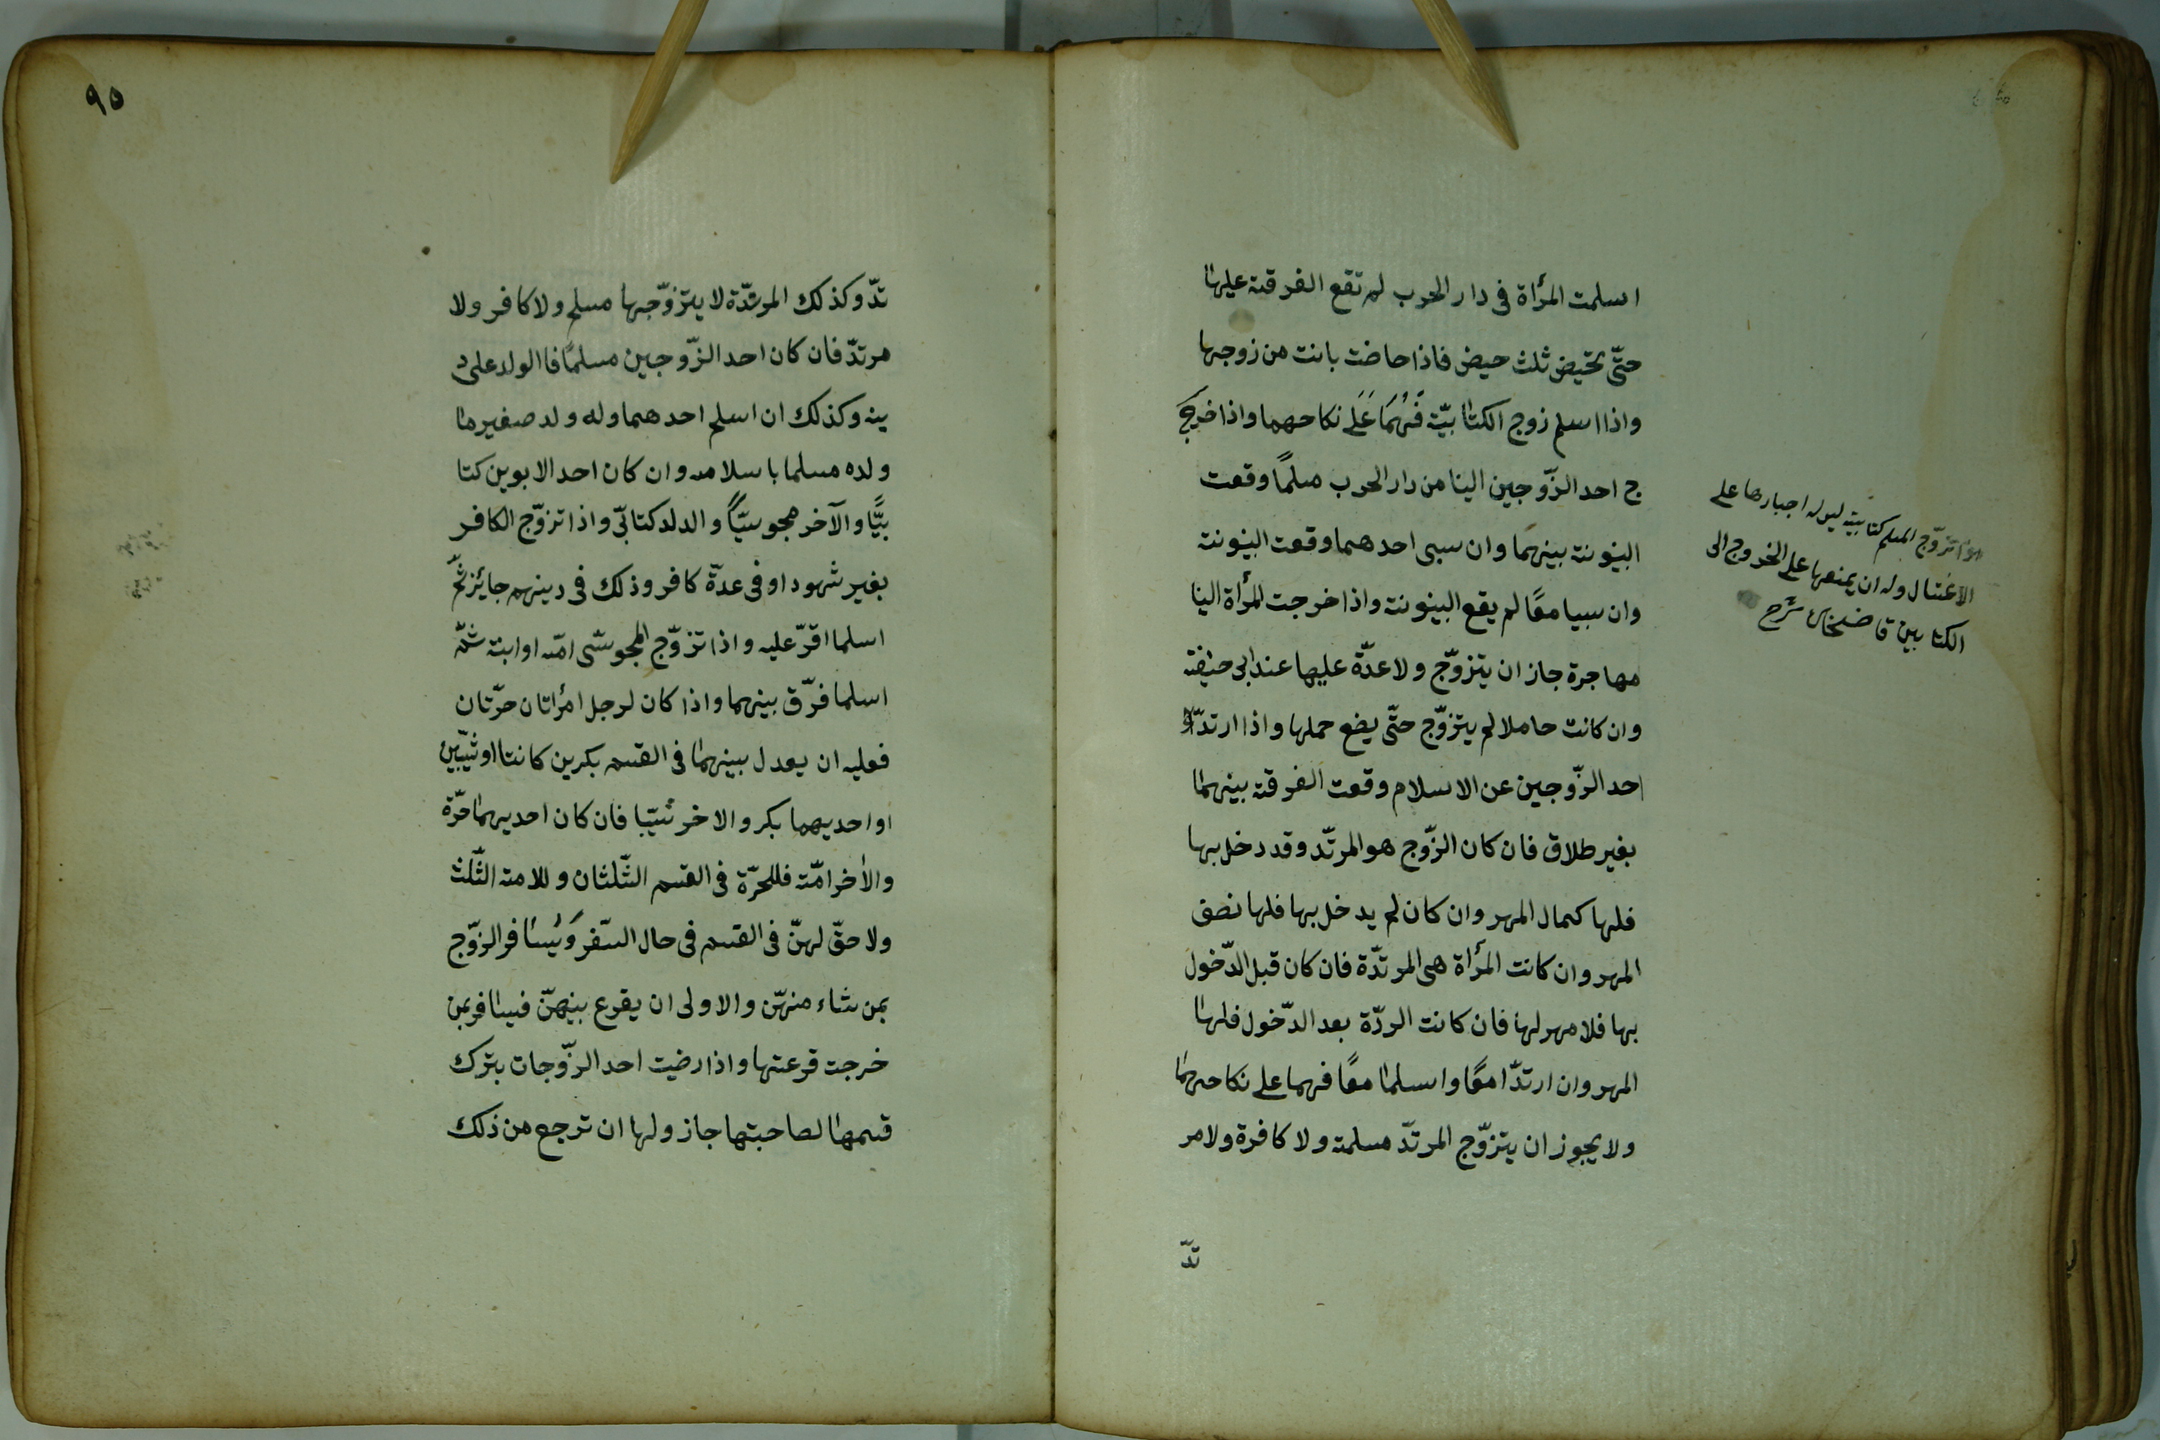 اسلمت المرأة فى دار الحرب لم تقع الفرقة عليها
حتّى تحيض ثلث حيض فاذا حاضت بانت من زوجها
واذا اسلم زوج الكتابيّة فَهُمَا عَلَى نكاحهما واذا خرج
ج احد الزّوجين الينا من دار الحرب مسلمًا وقعت
البينونة بينهما وان سبى احدهما وقعت البينونة
وان سبيا معًا لم يقع البينونة واذا خرجت المرأة الينا
مهاجرة جاز ان يتزوّج ولا عدّة عليها عند ابى حنيفة
وان كانت حاملا لم يتزوّج حتّى يضع حملها واذا ارتدّ
احد الزّوجين عن الاسلام وقعت الفرقة بينهما
بغير طلاق فان كان الزّوج هو المرتدّ وقد دخل بها
فلها كمال المهر وان كان لم يدخل بها فلها نصف
المهر وان كانت المرأة هى المرتدّة فان كان قبل الدّخول
بها فلا مهر لها فان كانت الردّة بعد الدّخول فلها
المهر وان ارتدّا معًا واسلما معًا فهما على نكاحهما
ولا يجوز ان يتزوّج المرتدّ مسلمة ولا كافرة ولا مر
تدّ
تزوّج المسلم كتابية ليس له اجبارها على
الاغتسال وله ان يمنعها على الخروج الى
الكتابين قاضيخان شرح
٩٥
تدّ وكذلك المرتدّة لا يتزوّجها مسلم ولا كافر ولا
مرتدّ فان كان احد الزّوجين مسلمًا فا الولد على د
ينه وكذلك ان اسلم احدهما وله ولد صغير ما
ولده مسلما باسلامه وان كان احد الابوين كتا
بيًّا والآخر مجوسيًّا والدلد كتابىّ واذا تزوّج الكافر
بغير شهود او فى عدّة كافر وذلك فى دينهم جايز ثمّ
اسلما اقرّ عليه واذا تزوّج المجوسّى امّه او ابنة ثمّ
اسلما فرّق بينهما واذا كان لرجل امرأتان حرّتان
فعليه ان يعدل بينهما فى القسم بكرين كانتا او ثيّبين
او احديهما بكر والاخر ثيّبا فان كان احديهما حرّة
والأخر امّة فللحرّة فى القسم الثّلثان وللامة الثّلث
ولا حقّ لهنّ فى القسم فى حال السّفر وَيُسافر الزّوج
بمن شاء منهّن والاولى ان يقرع بينهنّ فيسافر بمن
خرجت قرعتها واذا رضيت احد الزّوجات بترك
قسمها لصاحبتها جاز ولها ان ترجع من ذلك